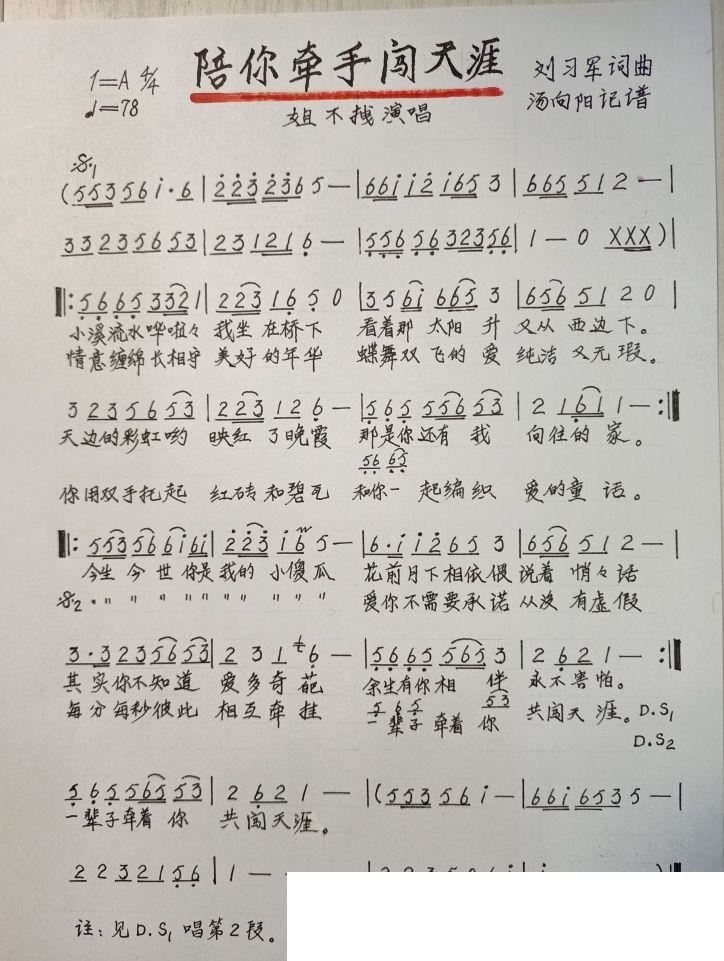 陪你牵手闯天涯
1=A 4/4
♩=78
刘习军词曲
汤向阳记谱
姐不拽演唱
(553 56 i·6 | 223 236 5 — | 66i i2 i65 3 | 665 51 2 — |
33 23 56 53 | 23 121 6 — | 556 56 323 56 | 1 — 0 XXX) |
‖: 56 65 332 1 | 223 16 5 0 | 35 6i 665 3 | 656 51 2 0 |
小溪流水哗啦々 我坐在桥下 看着那 太阳 升 又从 西边下。
情意缠绵长相守 美好的年华 蝶舞双飞的爱 纯洁又无瑕。
3 23 56 53 | 223 12 6 — | 565 556 53 | 2 161 1 — :‖
天边的彩虹哟 映红了晚霞 那是你还有 我 向往的 家。
56 65
你用双手托起 红砖和碧瓦 和你一起编织 爱的童话。
‖: 553 566 6i 6i | 223 i6 5 — | 6·i i2 65 3 | 656 51 2 — |
今生 今 世 你是 我的 小傻瓜 花前月下相依偎 说着 悄々话
𝄋2 〃 〃 〃 〃 〃 〃 〃 〃 〃 〃 爱你不需要承诺 从没有虚假
3·3 23 56 53 | 2 3 1 6 — | 56 65 565 3 | 2 62 1 — :‖
其实你不知道 爱多奇葩 余生有你相 伴 永不害怕。
每分每秒彼此 相互牵挂 一辈子牵着 你 共闯天涯。D.S1
5 65 53
D.S2
565 565 53 | 2 62 1 — | (553 56 i — | 66i 653 5 — |
一辈子牵着 你 共闯天涯。
22 321 56 | 1 —
注：见D.S1唱第2段。